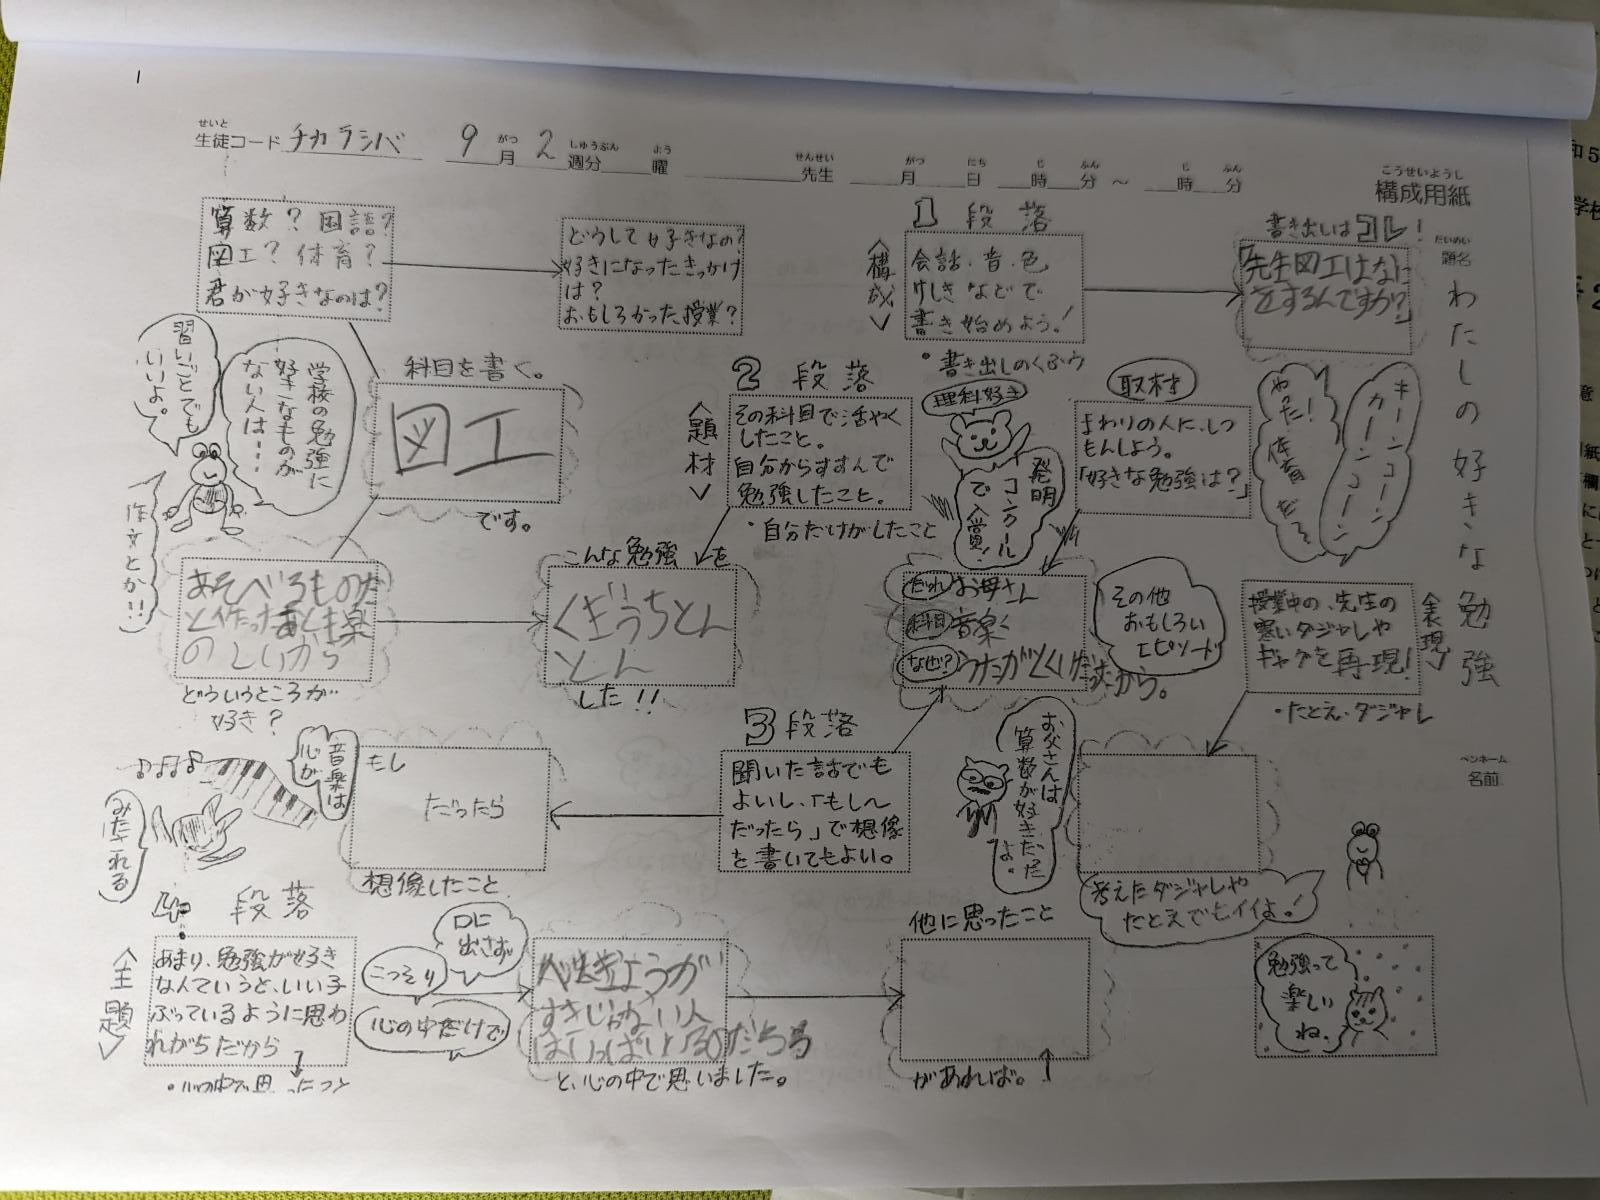 せいと
生徒コード チカラシバ 9月 2週分 曜 先生 月 日 時 分 ～ 時 分
がつ しゅうぶん よう せんせい がつ にち じ ふん じ ふん
こうせいようし
構成用紙
だいめい
題名
わたしの好きな勉強
ペンネーム
名前
算数? 国語?
図工? 体育?
君が好きなのは?
どうして好きなの?
好きになったきっかけ
は?
おもしろかった授業?
1 段落
<構成>
会話・音・色
けしきなどで
書き始めよう!
・書き出しのくふう
書き出しはコレ!
「先生図工はなに
をするんですか?」
習いごとでも
いいよ。
学校の勉強に
好きなものが
ない人は・・・
作文とか!!
科目を書く。
図工
です。
2 段落
<題材>
その科目で活やく
したこと。
自分からすすんで
勉強したこと。
・自分だけがしたこと
理科好き
発明
コンクール
で入賞!
取材
まわりの人に、しつ
もんしよう。
「好きな勉強は?」
キーンコーン
カーンコーン
やった!
体育だ
あそべるものだ
と作ったあとも楽
のしいから
どういうところが
好き?
こんな勉強を
くぎうちとん
とん
した!!
だれ お母さん
科目 音楽
なぜ? うたがとくいだったから。
その他
おもしろい
エピソード
<表現>
授業中の、先生の
寒いダジャレや
ギャグを再現!
・たとえ・ダジャレ
音楽は
心が
みたされる
もし
だったら
想像したこと
3 段落
聞いた話でも
よいし、「もし〜
だったら」で想像
を書いてもよい。
お父さんは
算数が好きだった
よ。
考えたダジャレや
たとえでもイイよ!
4 段落
<主題>
あまり、勉強が好き
なんていうと、いい子
ぶっているように思わ
れがちだから
口に
出さず
こっそり
心の中だけで
べんきょうが
すきじゃない人
はいっぱいいる
と、心の中で思いました。
他に思ったこと
があれば。
勉強って
楽しい
ね。